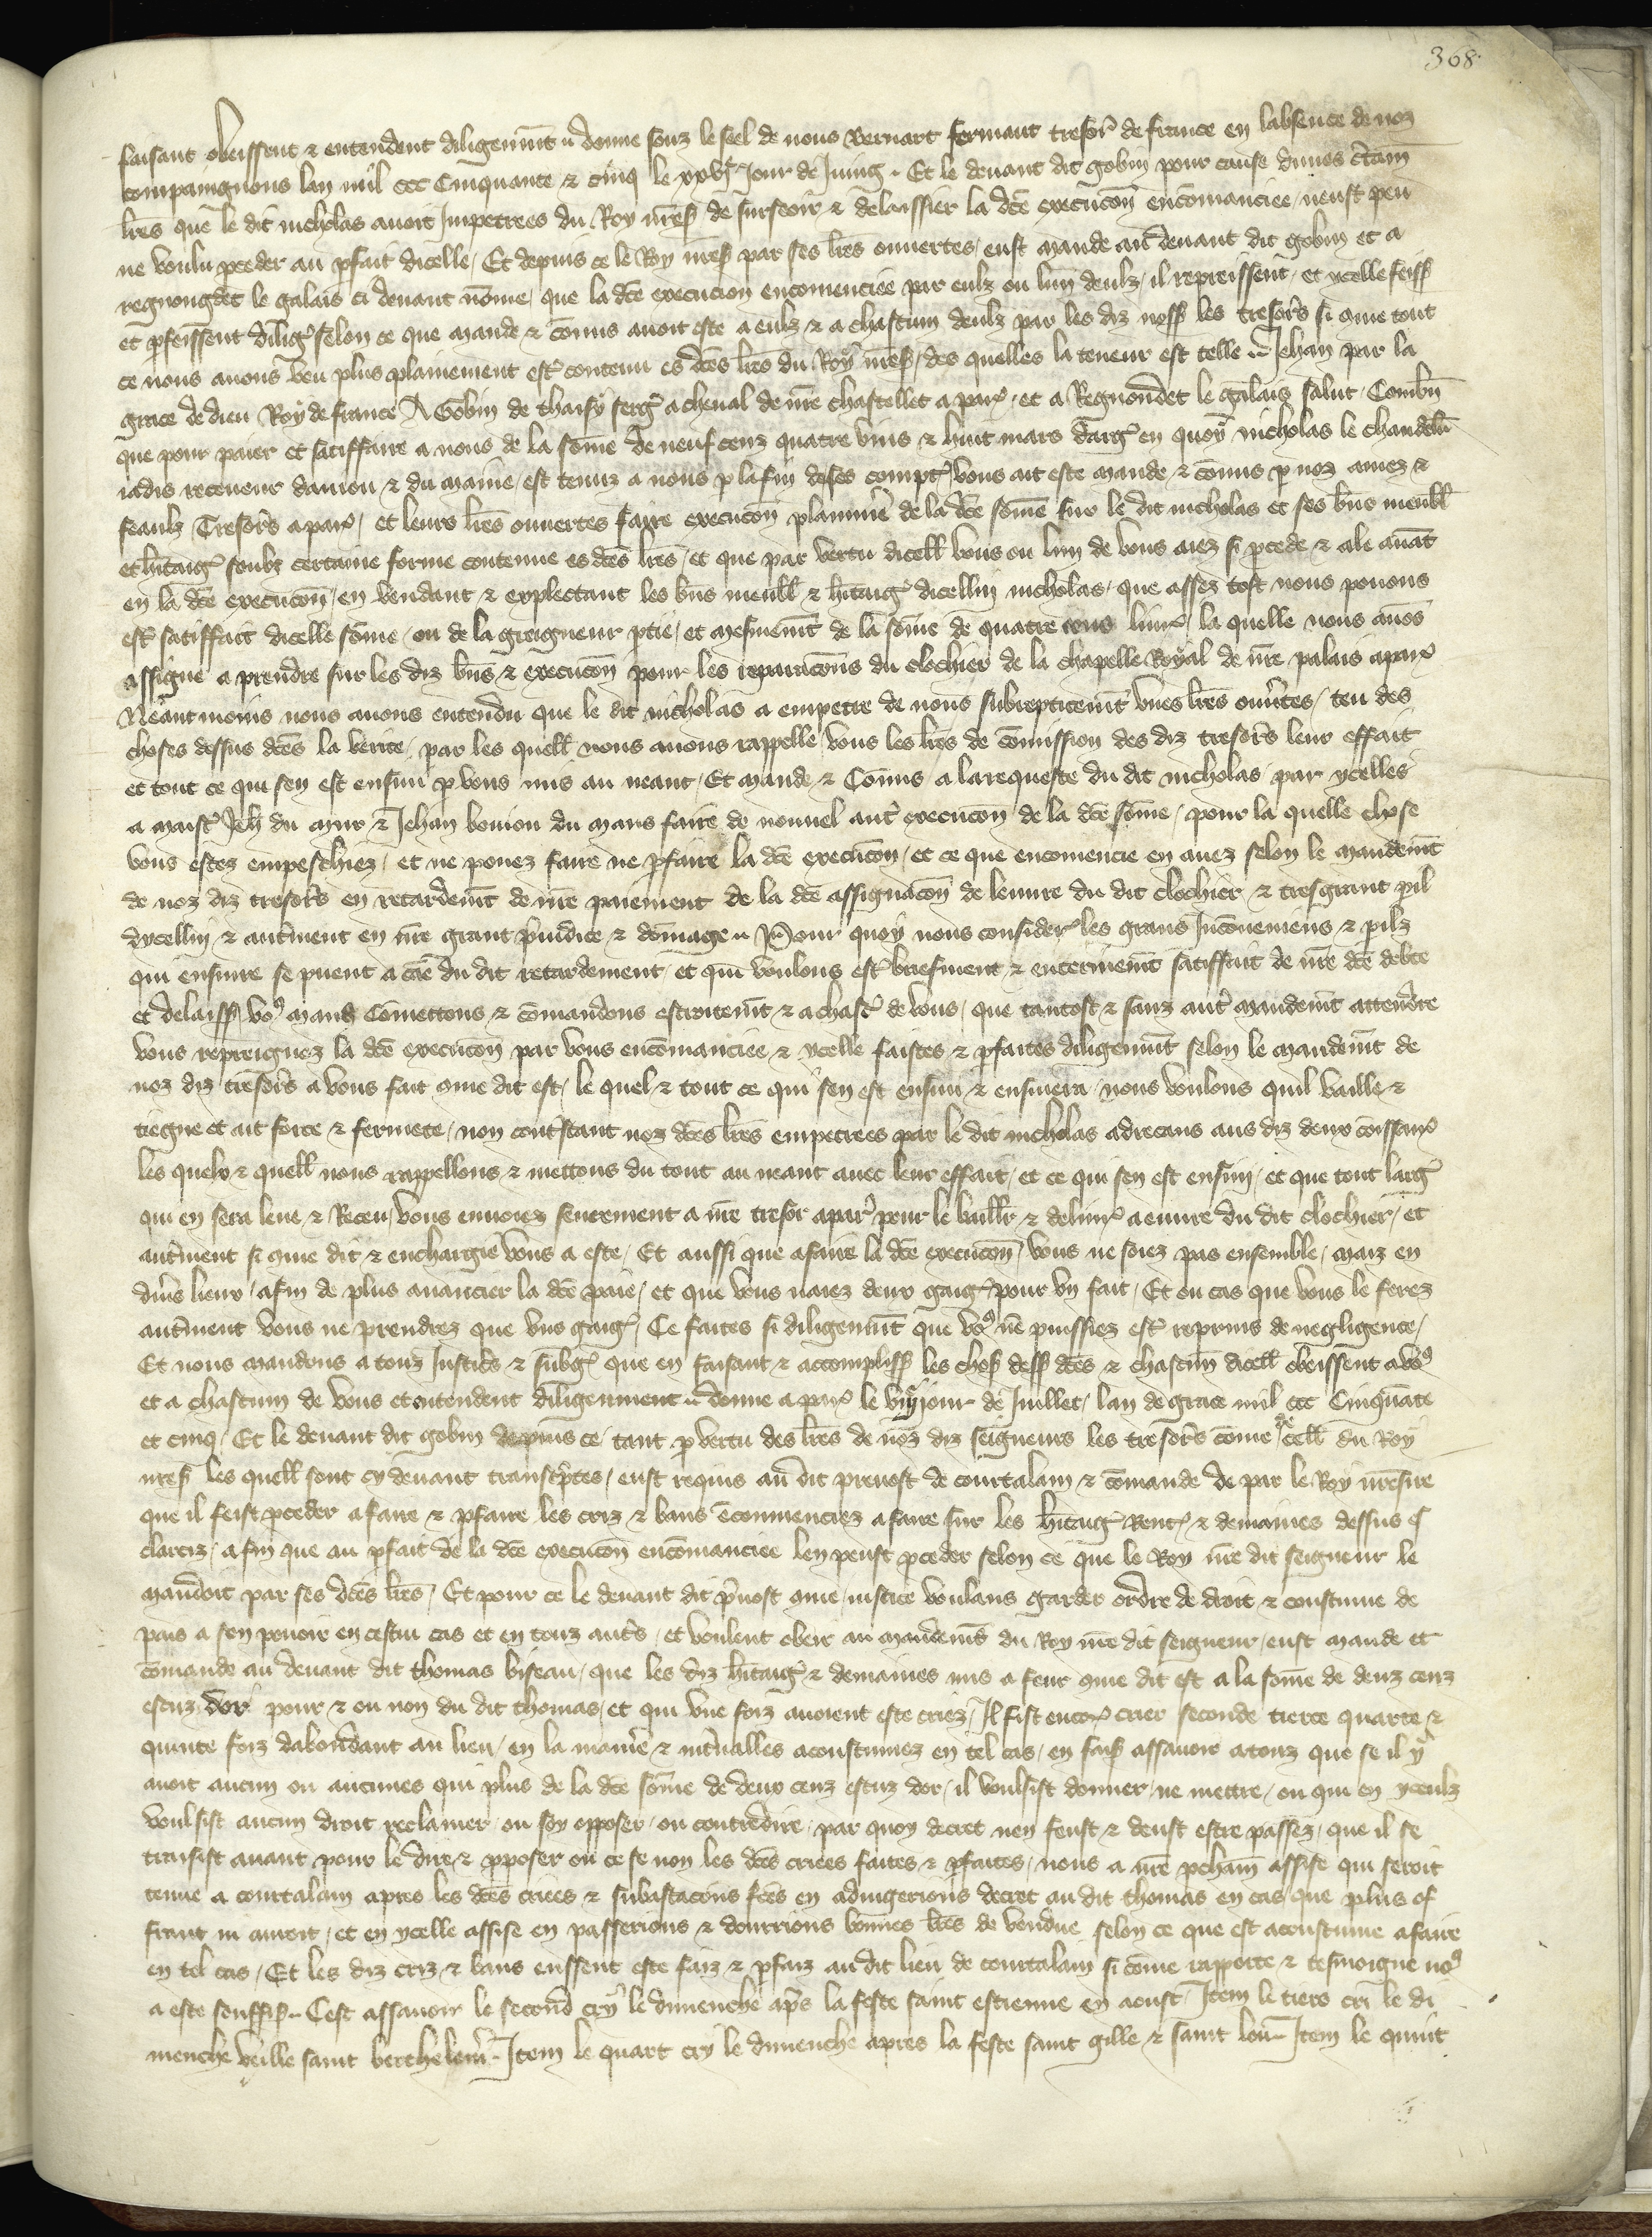 368
faisant obeissent & entendent diligenmt donne souz le seel de nous Bernart fermant tresor de france en labsence de noz
compaingnons lan mil ccc Cinquante & cinq le xxvje Jour de Juing. Et le devant dit gobin pour cause dunes
lres que le dit nicholas avoit Impetrees du Roy nres de surseoir & delaissier la dce execucon encomanciee neust peu
ne voulu pceder au pfait dicelle / Et depuis ce le Roy nres par ses lres ouvertes / eust mande au devant dit gobin et a
regnongdet le galais ci devant nome que la dce execucion encomenciee par eulz ou lun deulz / il repreissent / et ycelle feiss
et pfeissent dilig selon ce que mande & comis avoit este a eulz & a chascun deulz par les diz noss les tresors si come tout
ce nous avons veu plus plainement est contenu es dces lres du Roy nres / des quelles la teneur est telle Jehan par la
grace de dieu Roy de france A Gobin de thaisy serg a cheval de nre chastellet a par / et a Regnondet le galais salut / Combn
que pour paier et satiffaire a nous de la some de neuf cenz quatre vins & huit mars darg en quoy nicholas le chandelr
iadis receveur daniou & du maine / est tenuz a nous p la fin de ses compt / vous ait este mande & comis p noz amez &
feaulz Tresors a par / et leurs lres ouvertes faire execucon planiere de la dce some sur le dit nicholas et ses bns meubl
et hitaig soubz certaine forme contenue es dces lres / et que par vertu dicell vous ou lun de vous aiez si pcede & ale avat
en la dce execucon / en vendant & explectant les bns meubl & hitaig dicelluy nicholas / que assez tost nous povons
est satiffait dicelle some / ou de la greigneur ptie / et mesmemt de la some de quatre cens livr / la quelle nous avos
assigne a prendre sur les diz bns & execucon pour les reparacons du clochier de la chapelle Royal de nre palais a par
Neantmoins nous avons entendu que le dit nicholas a empetre de nous subrepticemt unes lres ouvtes / teu des
choses dessus dces la verite / par les quell nous avons rappelle vous les lres de comission des diz tresors leur effait
et tout ce qui sen est ensuiu p vous mis au neant / Et mande & Comis a la requeste du dit nicholas par ycelles
a maist Jeh du mur & Jehan bonion du mans faire de nouvel autr execucon de la dce some / pour la quelle chose
vous estes empeschiez / et ne povez faire ne pfaire la dce execucon / et ce que encomencie en avez selon le mandemt
de noz diz tresors en retardemt de nre paiement de la dce assignacon de leuvre du dit clochier & tresgrant pil
dycellui & autment en nre grant preiudice & domage Pour quoy nous consider les grans Inconveniens & pilz
qui ensuire se puent a cae du dit retardement / et qui voulons est briefment & enterinemt satiffait de nre dce debte
et delaiss vos mand Comettons & comandons estroitemt & a chasc de vous / que tantost & sanz autr mandemt attendre
vous repreignez la dce execucon par vous encomanciee & ycelle faictes & pfaites diligenmt selon le mandemt de
noz diz tresors a vous fait come dit est / le quel & tout ce qui sen est ensuiu & ensuiera / nous voulons quil vaille &
tiegne et ait force & fermete / non contstant noz dces lres empetrees par le dit nicholas adrecans aus diz deux coissair
les quelx & quell nous rappellons & mettons du tout au neant avec leur effait / et ce qui sen est ensuiu / et que tout larg
qui en sera leve & Receu / vous envoiez seurement a nre tresor a par pour le baill & delivr a euvre du dit clochier / et
autment si come dit & enchargie vous a este / Et aussi que a faire la dce execucon / vous ne soiez pas ensemble / maiz en
divs lieux / afin de plus avancier la dce paie / et que vous naiez deux gaig pour un fait / Et ou cas que vous le ferez
autment vous ne prendrez que uns gaig / Ce faites si diligenmt que vos ne puissiez est reprins de negligence /
Et nous mandons a touz Justics & subg que en faisant & accompliss les chos dess dces & chascun dicell obeissent a vos
et a chascun de vous et entendent diligenment donne a par le vije jour de Juillet / lan de grace mil ccc Cinquate
et cinq / Et le devant dit gobin depuis ce / tant p vertu des lres de noz diz seigneurs les tresors come de cell du Roy
nres les quell sont cy devant transcptes / eust requis au dit prevost de courtalain & comande de par le Roy nresire
que il feist pceder a faire & pfaire les criz & bans ecomenciez a faire sur les hitaig Rent & demaines dessus
clareiz / afin que au pfait de la dce execucon encomanciee len peust pceder selon ce que le Roy nre dit seigneur le
mandoit par ses dces lres / Et pour ce le devant dit pvost come iustice voulans garder ordre de droit & coustume de
pais a son pouoir en cestui cas et en touz auts / et voulent obeir au mandemt du Roy nre dit seigneur / eust mande et
comande au devant dit thomas biseau / que les diz hitaig & demaines mis a feur come dit est a la some de deuz cenz
escuz dor pour & ou non du dit thomas / et qui une foiz avoient este criez / Il fist encor crier seconde tierce quarte &
quinte foiz dabondant au lieu / en la maniere & intvalles acoustumez en tel cas / en fais assavoir a touz que se il y
avoit aucun ou aucunes qui plus de la dce some de deux cenz escuz dor / il voulsist donner / ne mettre / ou qui en yceulz
voulsist aucun droit reclamer / ou soy opposer / ou contredire / par quoy decret nen feust & deust estre passez / que il se
traisist avant pour le dire & pposer ou ce se non les dces criees faites & pfaites / nous a nre pcham assise qui seroit
tenue a courtalain apres les dces criees & subastacons fces en adiugerions decret au dit thomas en cas que plus of
frant ni auroit / et en ycelle assise en passerions & donrrions bonnes lres de vendue selon ce que est acoustume a faire
en tel cas / Et les diz criz & bans eussent este faiz & pfaiz au dit lieu de courtalain si come rapporte & tesmoigne nos
a este souffis. Cest assavoir le second cry le dimenche aps la feste saint estienne en aoust / Item le tiers cri le di
menche veille saint berthelemi. Item le quart cry le dimenche apres la feste saint gille & saint leu. Item le quint